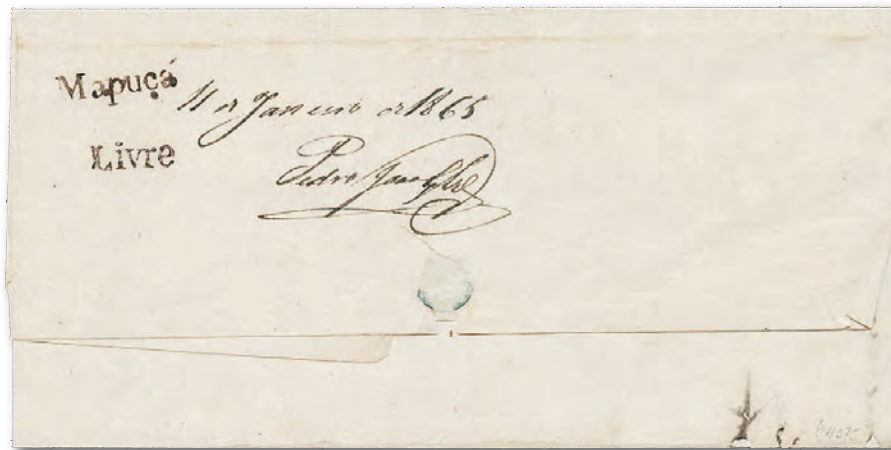 Mapuçá
11 de Janeiro de 1865
Livre
Pedro